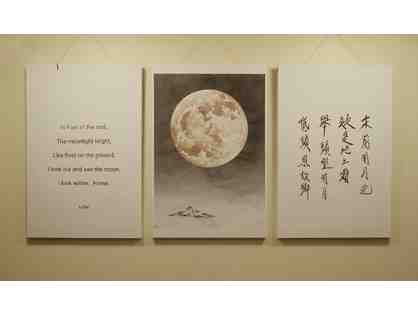 of the bed,
The moonlight bright,
Like frost on the ground,
I look out and see the moon,
I look within, Home.
前明月光
是地上霜
舉頭望明月
低頭思故鄉